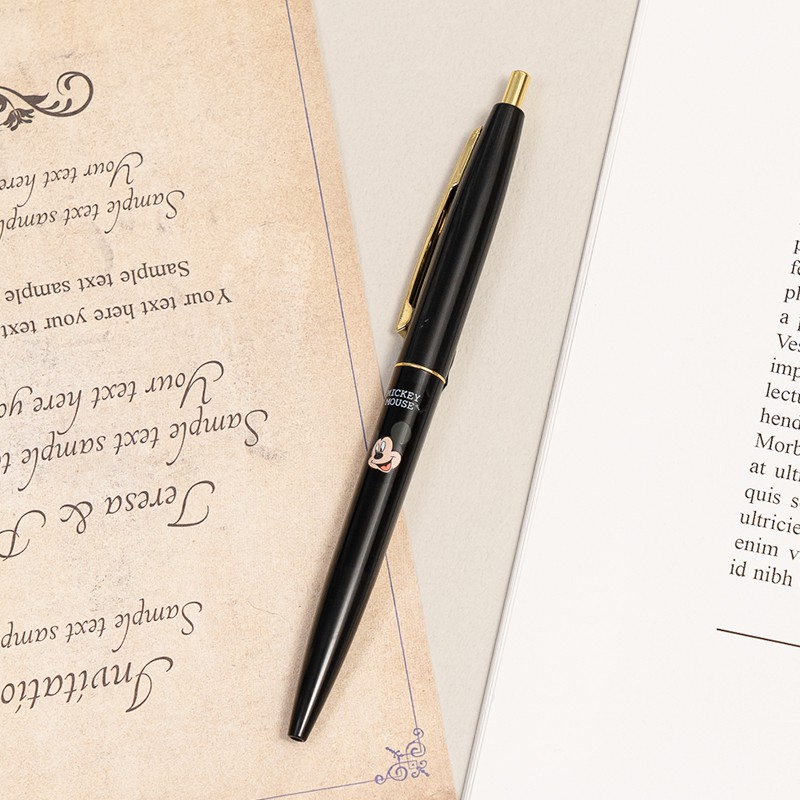 MICKEY
MOUSE
Invitatio
Sample text samp
Teresa &
Sample text sample
Your text here yo
Your text here your text
Sample text sample
Sample text sampl
Your text here
a
Ves
imp
lectu
hend
Morb
at ultr
quis s
ultricie
enim v
id nibh